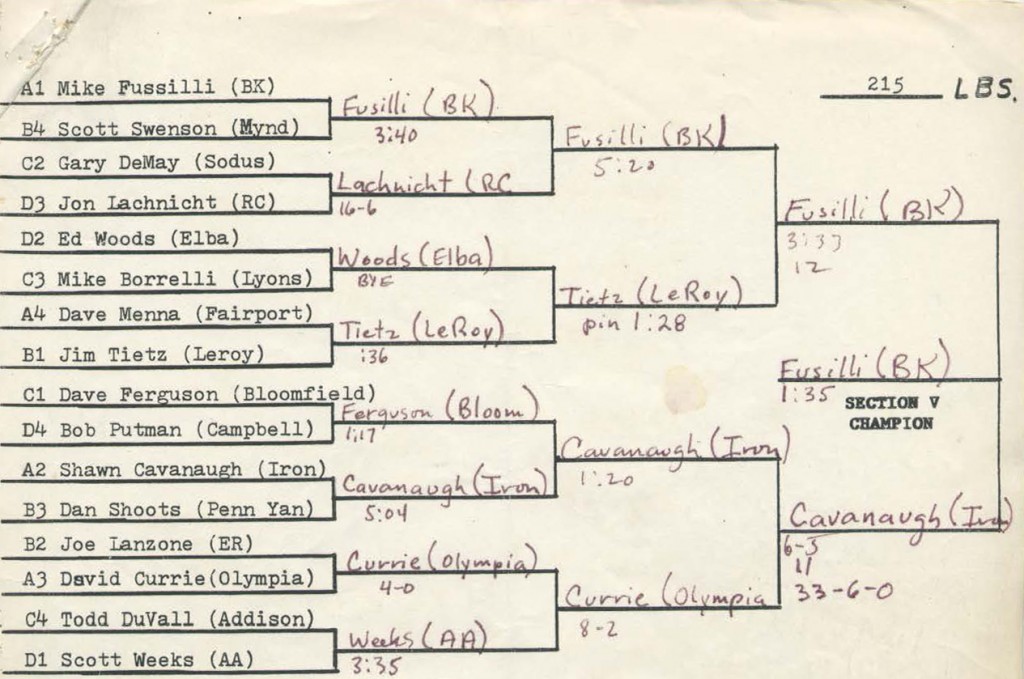 215 LBS.
A1 Mike Fussilli (BK)
B4 Scott Swenson (Mynd)
C2 Gary DeMay (Sodus)
D3 Jon Lachnicht (RC)
D2 Ed Woods (Elba)
C3 Mike Borrelli (Lyons)
A4 Dave Menna (Fairport)
B1 Jim Tietz (Leroy)
C1 Dave Ferguson (Bloomfield)
D4 Bob Putman (Campbell)
A2 Shawn Cavanaugh (Iron)
B3 Dan Shoots (Penn Yan)
B2 Joe Lanzone (ER)
A3 David Currie(Olympia)
C4 Todd DuVall (Addison)
D1 Scott Weeks (AA)
Fusilli (BK)
3:40
Lachnicht (RC
16-6
Woods (Elba)
BYE
Tietz (LeRoy)
:36
Ferguson (Bloom)
1:17
Cavanaugh (Iron)
5:04
Currie (Olympia)
4-0
Weeks (AA)
3:35
Fusilli (BK)
5:20
Tietz (LeRoy)
pin 1:28
Cavanaugh (Iron)
1:20
Currie (Olympia
8-2
Fusilli (BK)
3:33
12
Cavanaugh (Iron)
6-3
11
33-6-0
Fusilli (BK)
1:35
SECTION V
CHAMPION